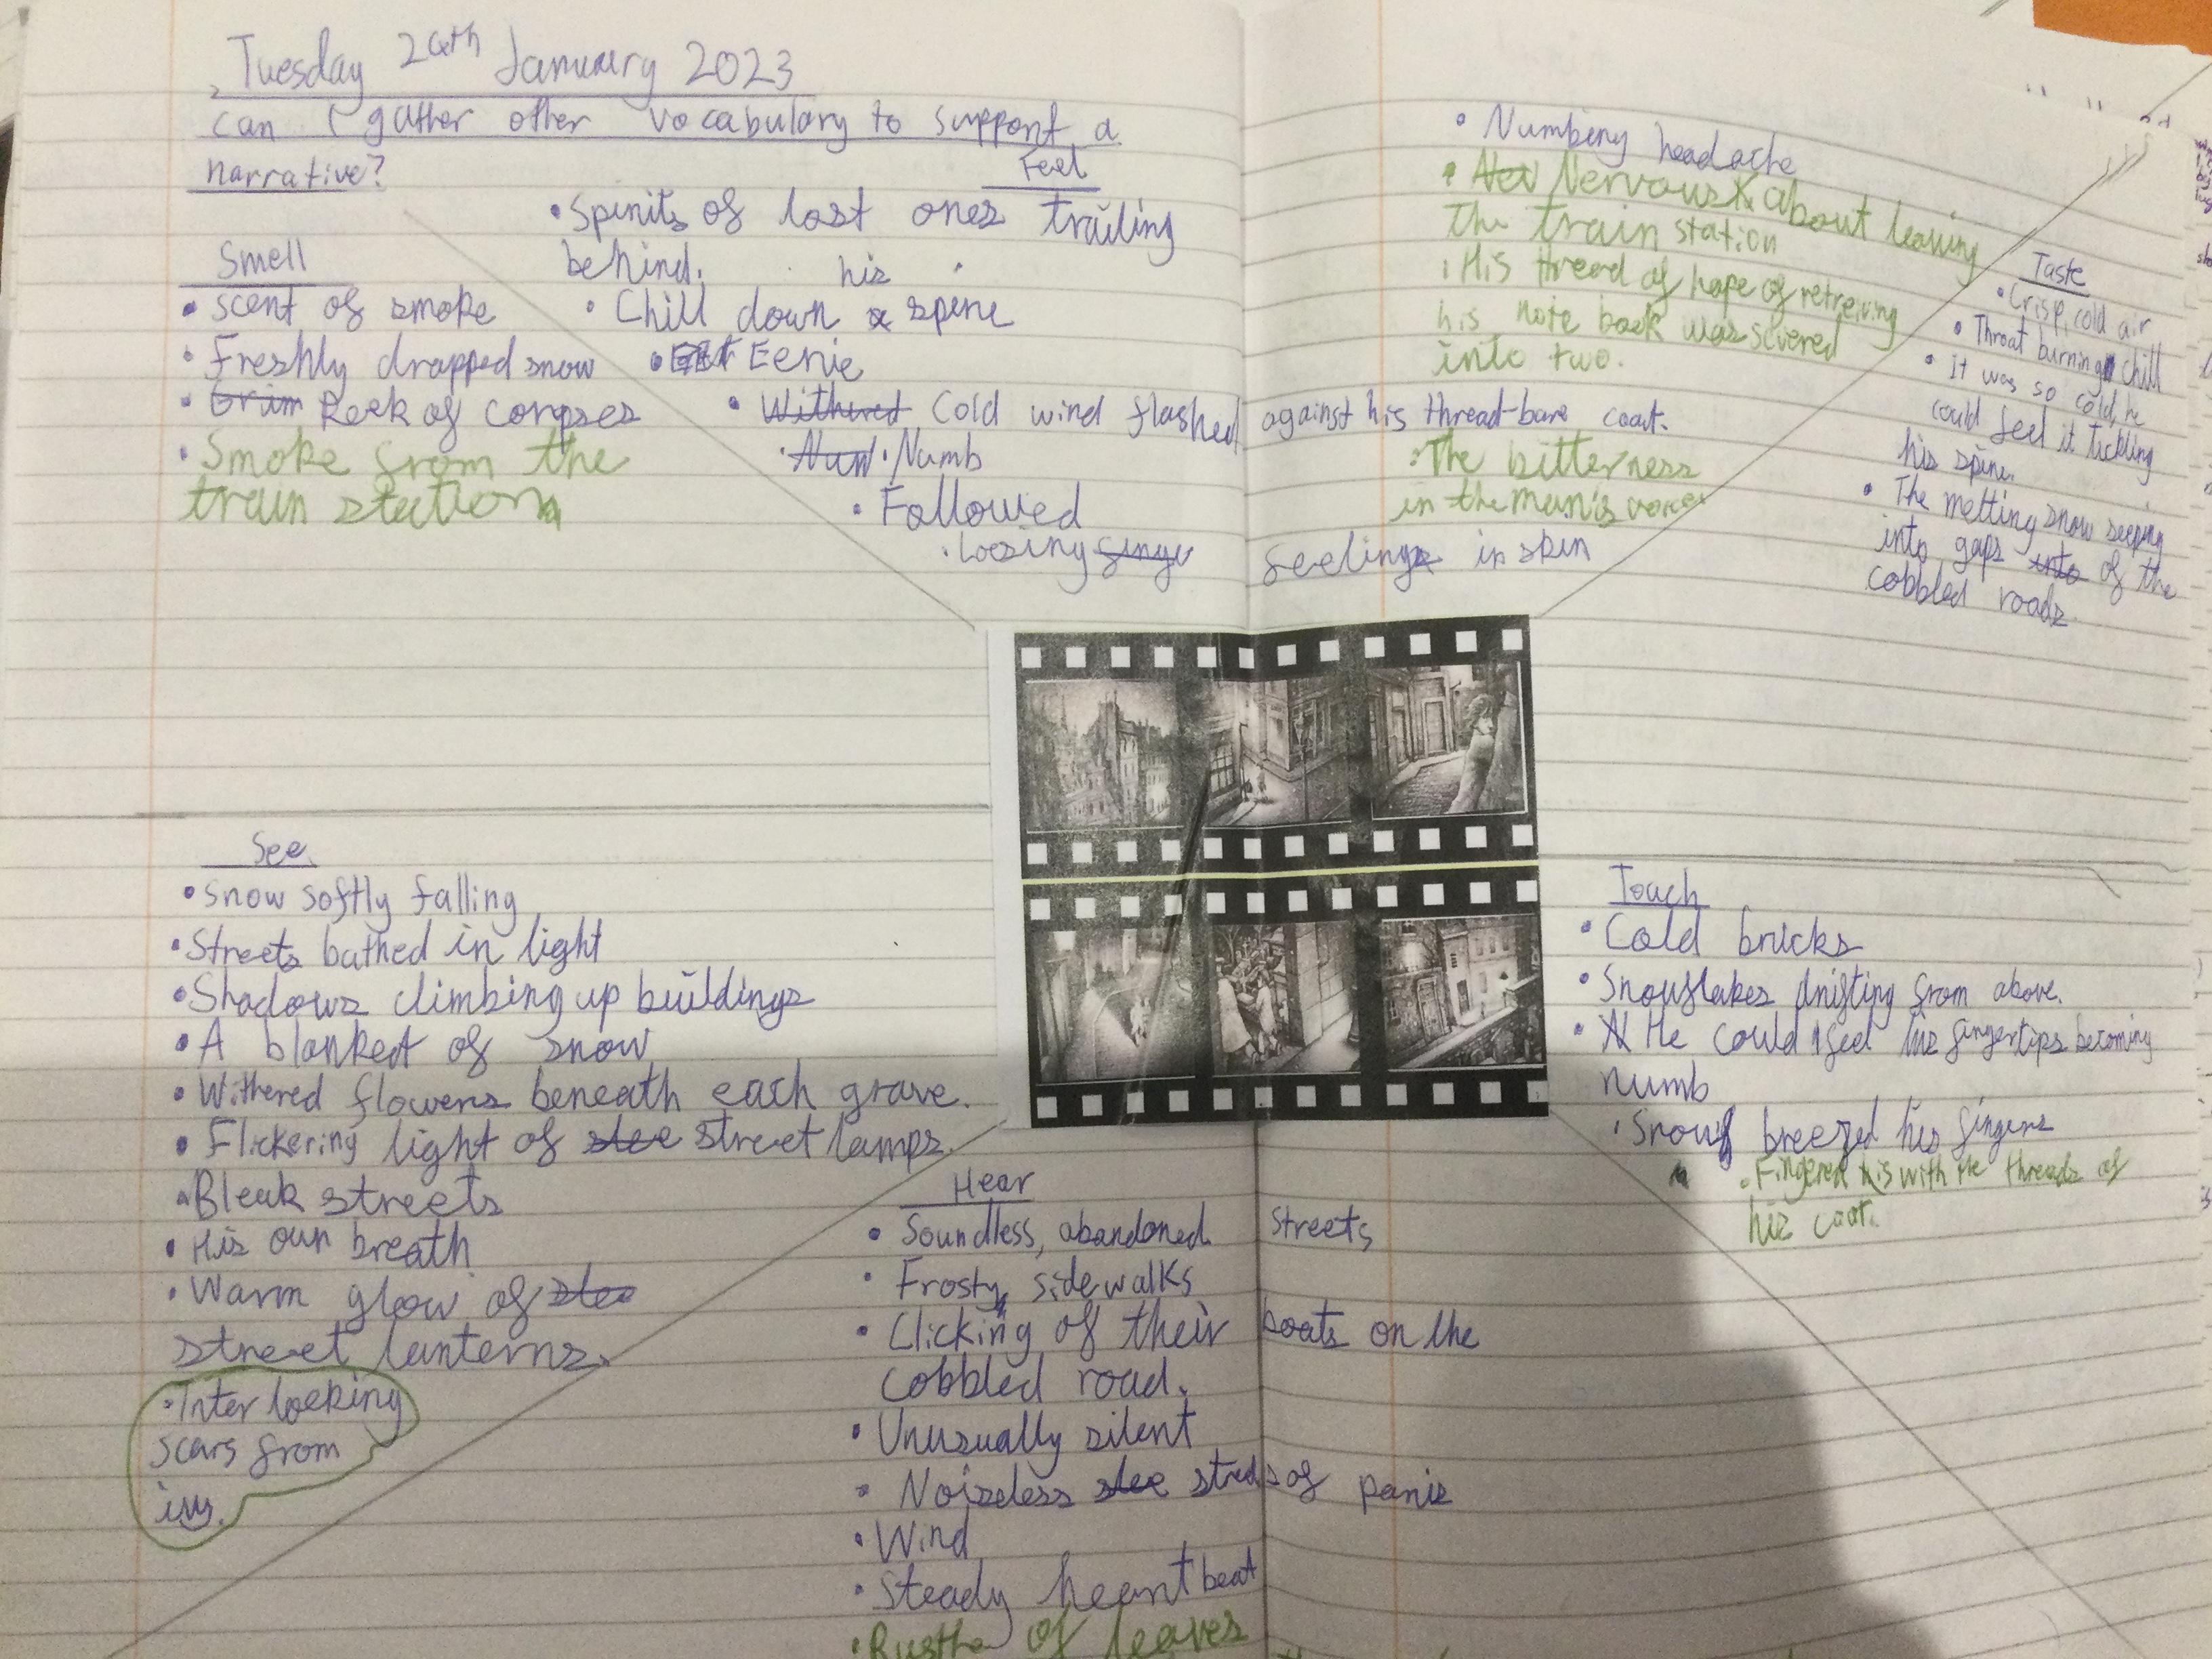 Tuesday 24th January 2023
can I gather other vocabulary to support a
narrative?
Smell
• scent of smoke
• Freshly dropped snow
• Grim Reek of corpses
• Smoke from the
train station
Feel
• Spirits of lost ones trailing
behind.
• Chill down his spine
• Eerie
• Withered Cold wind flashed against his thread-bare coat.
• Numb
• Followed
• Loosing feeling in
• Numbing headache
• Nervous about leaving
the train station
• His thread of hope of retreiving
his note book was severed
into two.
• The bitterness
in the man's voice
Taste
• Crisp, cold air
• Throat burning chill
• it was so cold, he
could feel it tickling
his spine.
• The melting snow seeping
into gaps into of the
cobbled roads.
See
• Snow softly falling
• Streets bathed in light
• Shadows climbing up buildings
• A blanket of snow
• Withered flowers beneath each grave.
• Flickering light of stee street lamps.
• Bleak streets
• His own breath
• Warm glow of stee
street lanterns.
• Inter locking
scars from
Hear
• Soundless, abandoned streets
• Frosty sidewalks
• Clicking of their boots on the
cobbled road.
• Unusually silent
• Noiseless stee streets of
• Wind
• Steady heart beat
• of leaves
Touch
• Cold bricks
• Snowflakes drifting from above.
• He could feel his fingertips becoming
numb
• Snow his fingers
• Fingered his with the threads of
his coat.